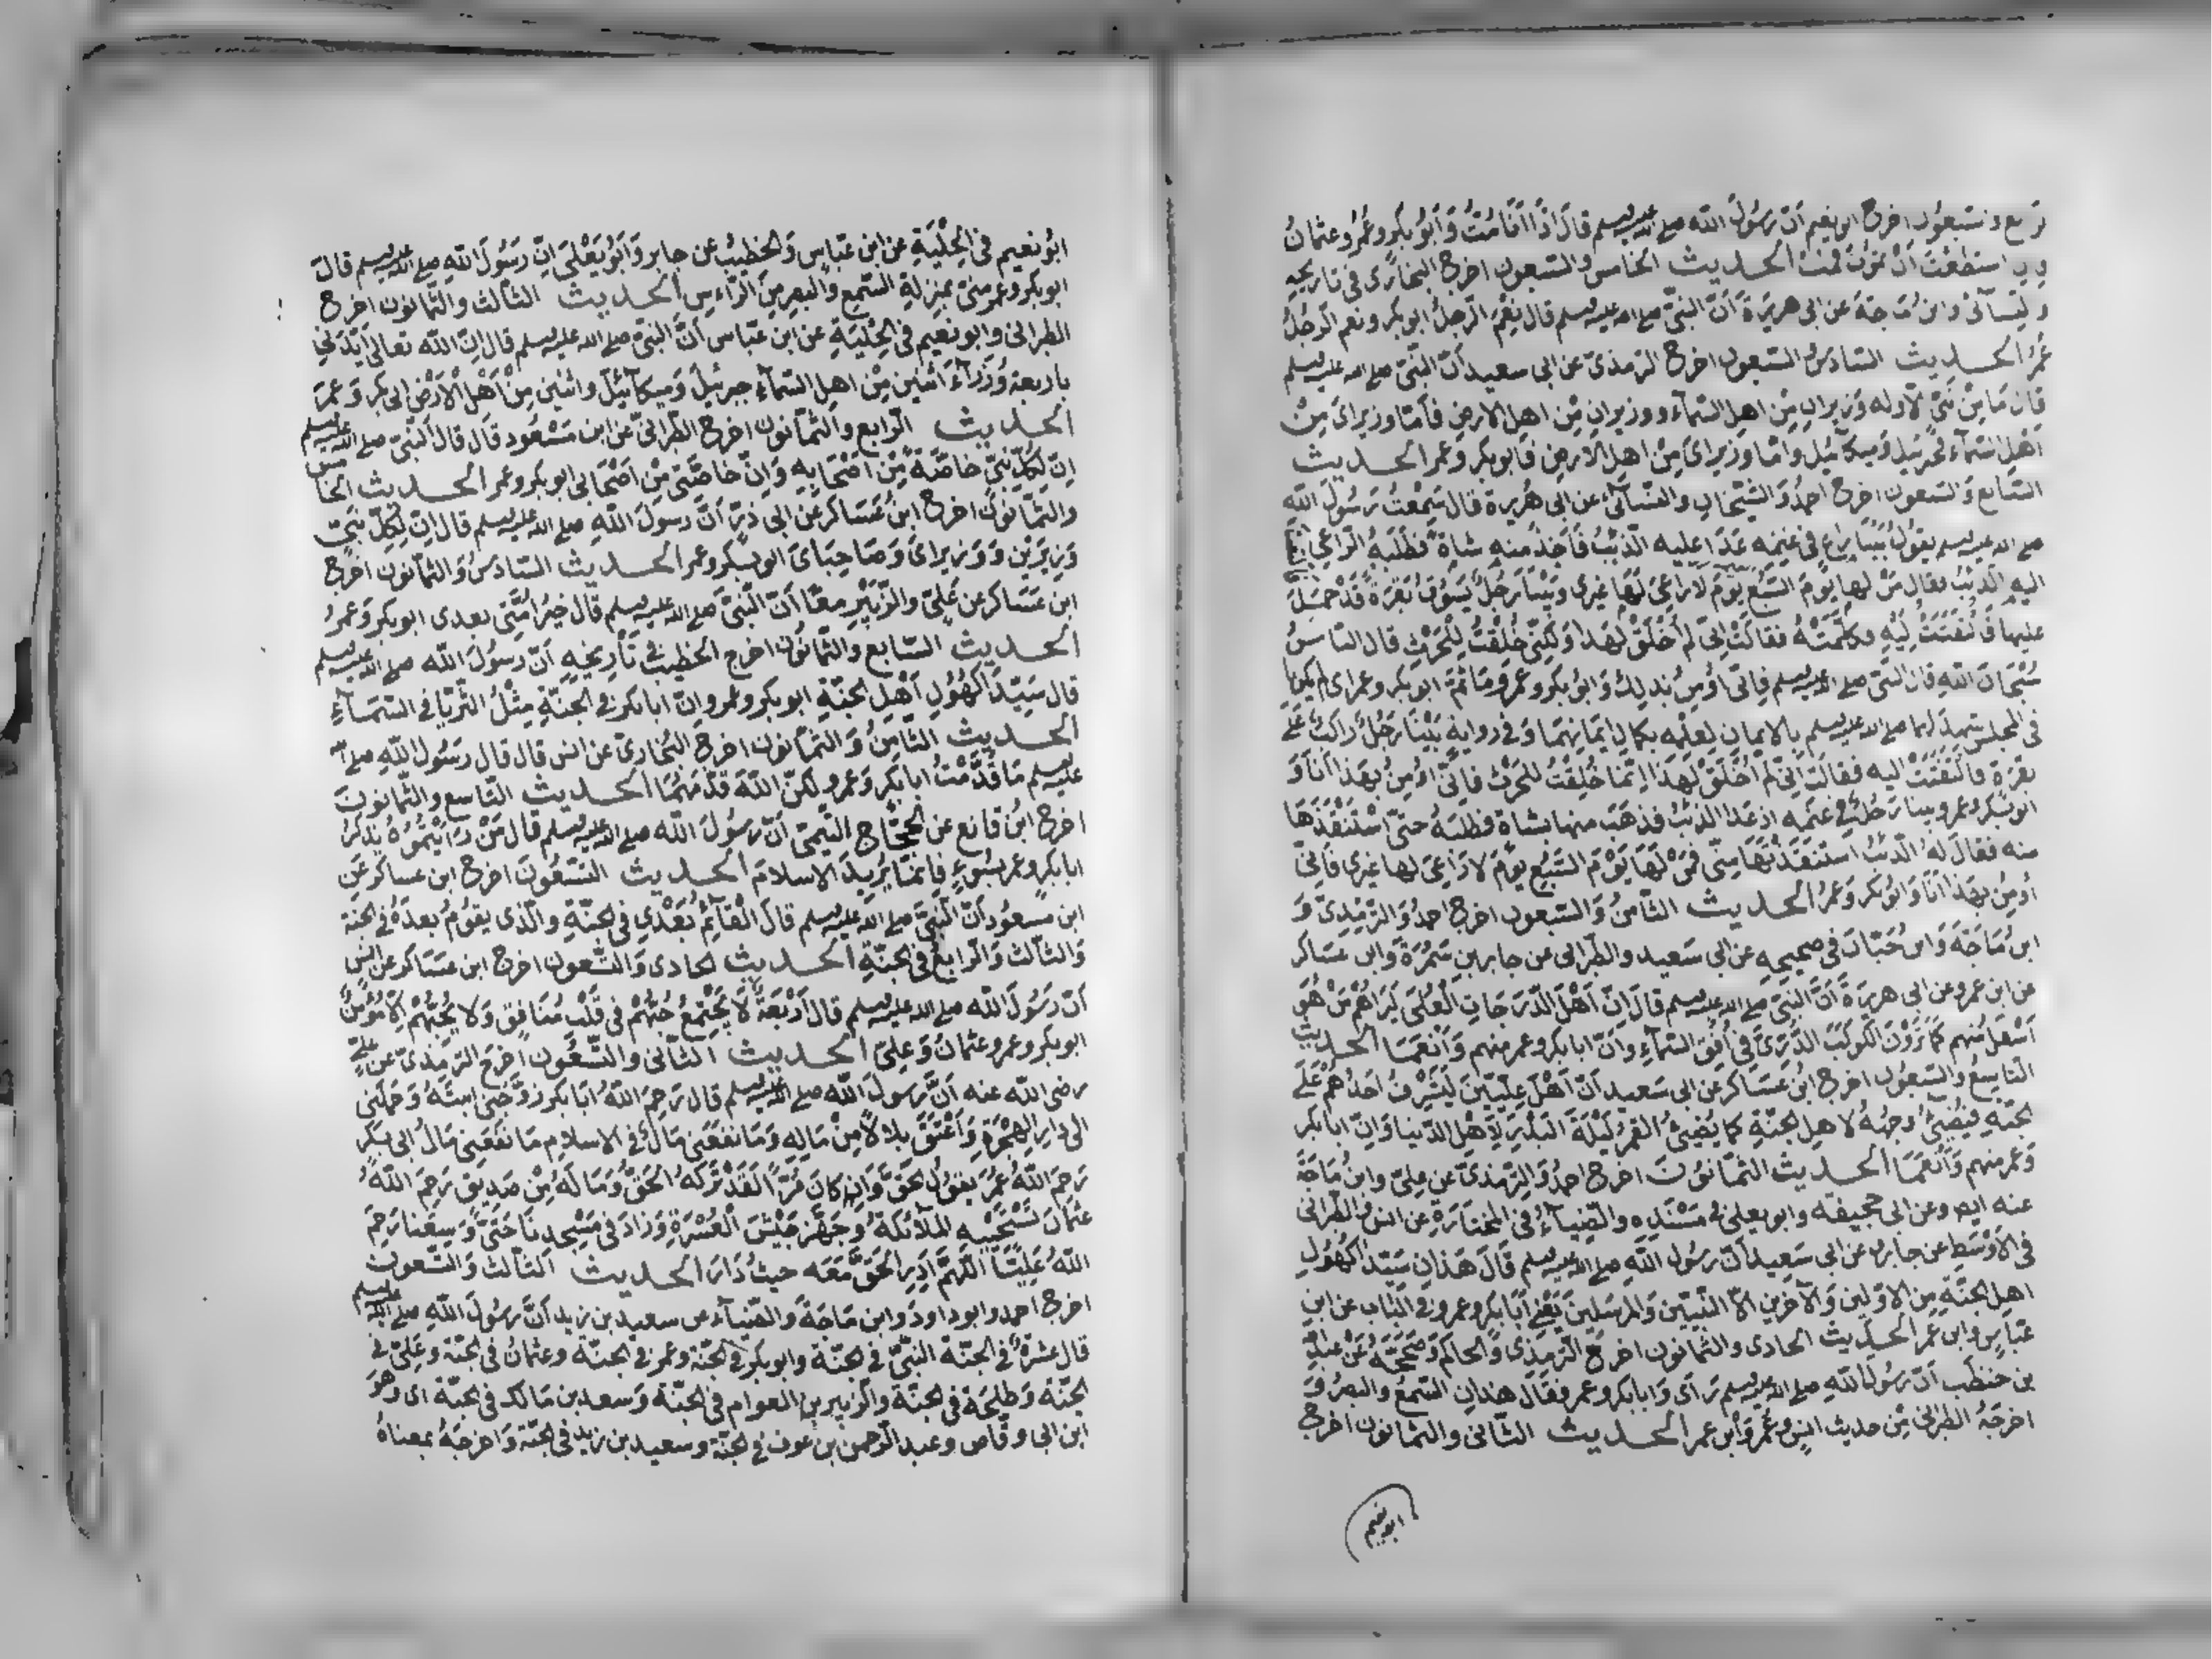 وسبعون اخرج ابو نعيم أن رسول الله صلى الله عليه وسلم قال اذا انا مت وابو بكر وعمر وعثمان
استطعت أن تموت فمت الحديث الخامس والسبعون اخرج البخاري في تاريخه
والنسائي وابن ماجة عن ابي هريرة أن النبي صلى الله عليه وسلم قال نعم الرجل ابو بكر ونعم الرجل
عمر الحديث السادس والسبعون اخرج الترمذي عن ابي سعيد أن النبي صلى الله عليه وسلم
قال ما من نبي الا وله وزيران من اهل السماء ووزيران من اهل الارض فأما وزيراي من
أهل السماء فجبرئيل وميكائيل واما وزيراي من اهل الارض فابو بكر وعمر الحديث
السابع والسبعون اخرج احمد والشيخان والنسائي عن ابي هريرة قال سمعت رسول الله
صلى الله عليه وسلم يقول بينا راع في غنمه عدا عليه الذئب فاخذ منه شاة فطلبه الراعي
اليه الذئب فقال من لها يوم السبع يوم لا راعي لها غيري وبينا رجل يسوق بقرة قد حمل
عليها فالتفتت اليه وكلمته فقالت اني لم أخلق لهذا ولكني خلقت للحرث قال الناس
سبحان الله قال النبي صلى الله عليه وسلم فاني اؤمن بذلك وابو بكر وعمر وما ثمة ابو بكر وعمر اي لم يكونا
في المجلس شهد لهما صلى الله عليه وسلم بالايمان لعلمه بكمال ايمانهما وفي رواية بينا رجل راكب على
بقرة فالتفتت اليه فقالت اني لم أخلق لهذا انما خلقت للحرث فاني اؤمن بهذا انا و
ابو بكر وعمر وبينا رجل في غنمه اذ عدا الذئب فذهب منها بشاة فطلبه حتى استنقذها
منه فقال له الذئب استنقذتها مني فمن لها يوم السبع يوم لا راعي لها غيري فاني
أومن بهذا انا وابو بكر وعمر الحديث الثامن والسبعون اخرج احمد والترمذي و
ابن ماجة وابن حبان في صحيحه عن ابي سعيد والطبراني عن جابر بن سمرة وابن عساكر
عن ابن عمرو وعن ابي هريرة أن النبي صلى الله عليه وسلم قال ان أهل الدرجات العلى ليراهم من هو
أسفل منهم كما ترون الكوكب الدري في افق السماء وان ابا بكر وعمر منهم وأنعما الحديث
التاسع والسبعون اخرج ابن عساكر عن ابي سعيد ان أهل عليين ليشرف احدهم على
الجنة فيضيئ وجهه لاهل الجنة كما يضيئ القمر ليلة البدر لاهل الدنيا وان ابا بكر
وعمر منهم وأنعما الحديث الثمانون اخرج احمد والترمذي عن علي وابن ماجة
عنه ايضا وعن ابي جحيفة وابو يعلى في مسنده والضياء في المختارة عن انس والطبراني
في الأوسط عن جابر وعن ابي سعيد أن رسول الله صلى الله عليه وسلم قال هذان سيدا كهول
اهل الجنة من الاولين والآخرين الا النبيين والمرسلين يعني أبا بكر وعمر وفي الباب عن ابن
عباس وابن عمر الحديث الحادي والثمانون اخرج الترمذي والحاكم وصححه عن عبد الله
بن حنطب أن رسول الله صلى الله عليه وسلم رأى ابا بكر وعمر فقال هذان السمع والبصر و
اخرجه الطبراني من حديث ابن عمر وابن عمر الحديث الثاني والثمانون اخرج
ابو نعيم
ابو نعيم في الحلية عن ابن عباس والخطيب عن جابر وابو يعلى ان رسول الله صلى الله عليه وسلم قال
ابو بكر وعمر مني بمنزلة السمع والبصر من الرأس الحديث الثالث والثمانون اخرج
الطبراني وابو نعيم في الحلية عن ابن عباس أن النبي صلى الله عليه وسلم قال ان الله تعالى أيدني
باربعة وزراء اثنين من اهل السماء جبرئيل وميكائيل واثنين من أهل الأرض ابي بكر وعمر
الحديث الرابع والثمانون اخرج الطبراني عن ابن مسعود قال قال النبي صلى الله عليه وسلم
ان لكل نبي خاصة من اصحابه وان خاصتي من اصحابي ابو بكر وعمر الحديث الخامس
والثمانون اخرج ابن عساكر عن ابي ذر أن رسول الله صلى الله عليه وسلم قال ان لكل نبي
وزيرين ووزيراي وصاحباي ابو بكر وعمر الحديث السادس والثمانون اخرج
ابن عساكر عن علي والزبير معا أن النبي صلى الله عليه وسلم قال خير امتي بعدي ابو بكر وعمر
الحديث السابع والثمانون اخرج الخطيب في تأريخه أن رسول الله صلى الله عليه وسلم
قال سيدا كهول أهل الجنة ابو بكر وعمر وان ابا بكر في الجنة مثل الثريا في السماء
الحديث الثامن والثمانون اخرج البخاري عن انس قال قال رسول الله صلى الله
عليه وسلم ما قدمت ابا بكر وعمر ولكن الله قدمهما الحديث التاسع والثمانون
اخرج ابن قانع عن الحجاج التيمي أن رسول الله صلى الله عليه وسلم قال من رأيتموه يذكر
ابا بكر وعمر بسوء فانما يريد الاسلام الحديث التسعون اخرج ابن عساكر عن
ابن مسعود أن النبي صلى الله عليه وسلم قال القائم بعدي في الجنة والذي يقوم بعده في الجنة
والثالث والرابع في الجنة الحديث الحادي والتسعون اخرج ابن عساكر عن انس
أن رسول الله صلى الله عليه وسلم قال أربعة لا يجتمع حبهم في قلب منافق ولا يحبهم الا مؤمن
ابو بكر وعمر وعثمان وعلي الحديث الثاني والتسعون اخرج الترمذي عن علي
رضى الله عنه أن رسول الله صلى الله عليه وسلم قال رحم الله ابا بكر زوجني ابنته وحملني
الى دار الهجرة واعتق بلالا من ماله وما نفعني مال في الاسلام ما نفعني مال ابي بكر
رحم الله عمر يقول الحق وان كان مرا لقد تركه الحق وما له من صديق رحم الله
عثمان تستحييه الملائكة وجهز جيش العسرة وزاد في مسجدنا حتى وسعنا رحم
الله عليا اللهم ادر الحق معه حيث دار الحديث الثالث والتسعون
اخرج احمد وابو داود وابن ماجة والضياء عن سعيد بن زيد أن رسول الله صلى الله عليه وسلم
قال عشرة في الجنة النبي في الجنة وابو بكر في الجنة وعمر في الجنة وعثمان في الجنة وعلي في
الجنة وطلحة في الجنة والزبير بن العوام في الجنة وسعد بن مالك في الجنة اي وهو
ابن ابي وقاص وعبد الرحمن بن عوف في الجنة وسعيد بن زيد في الجنة واخرجه بمعناه